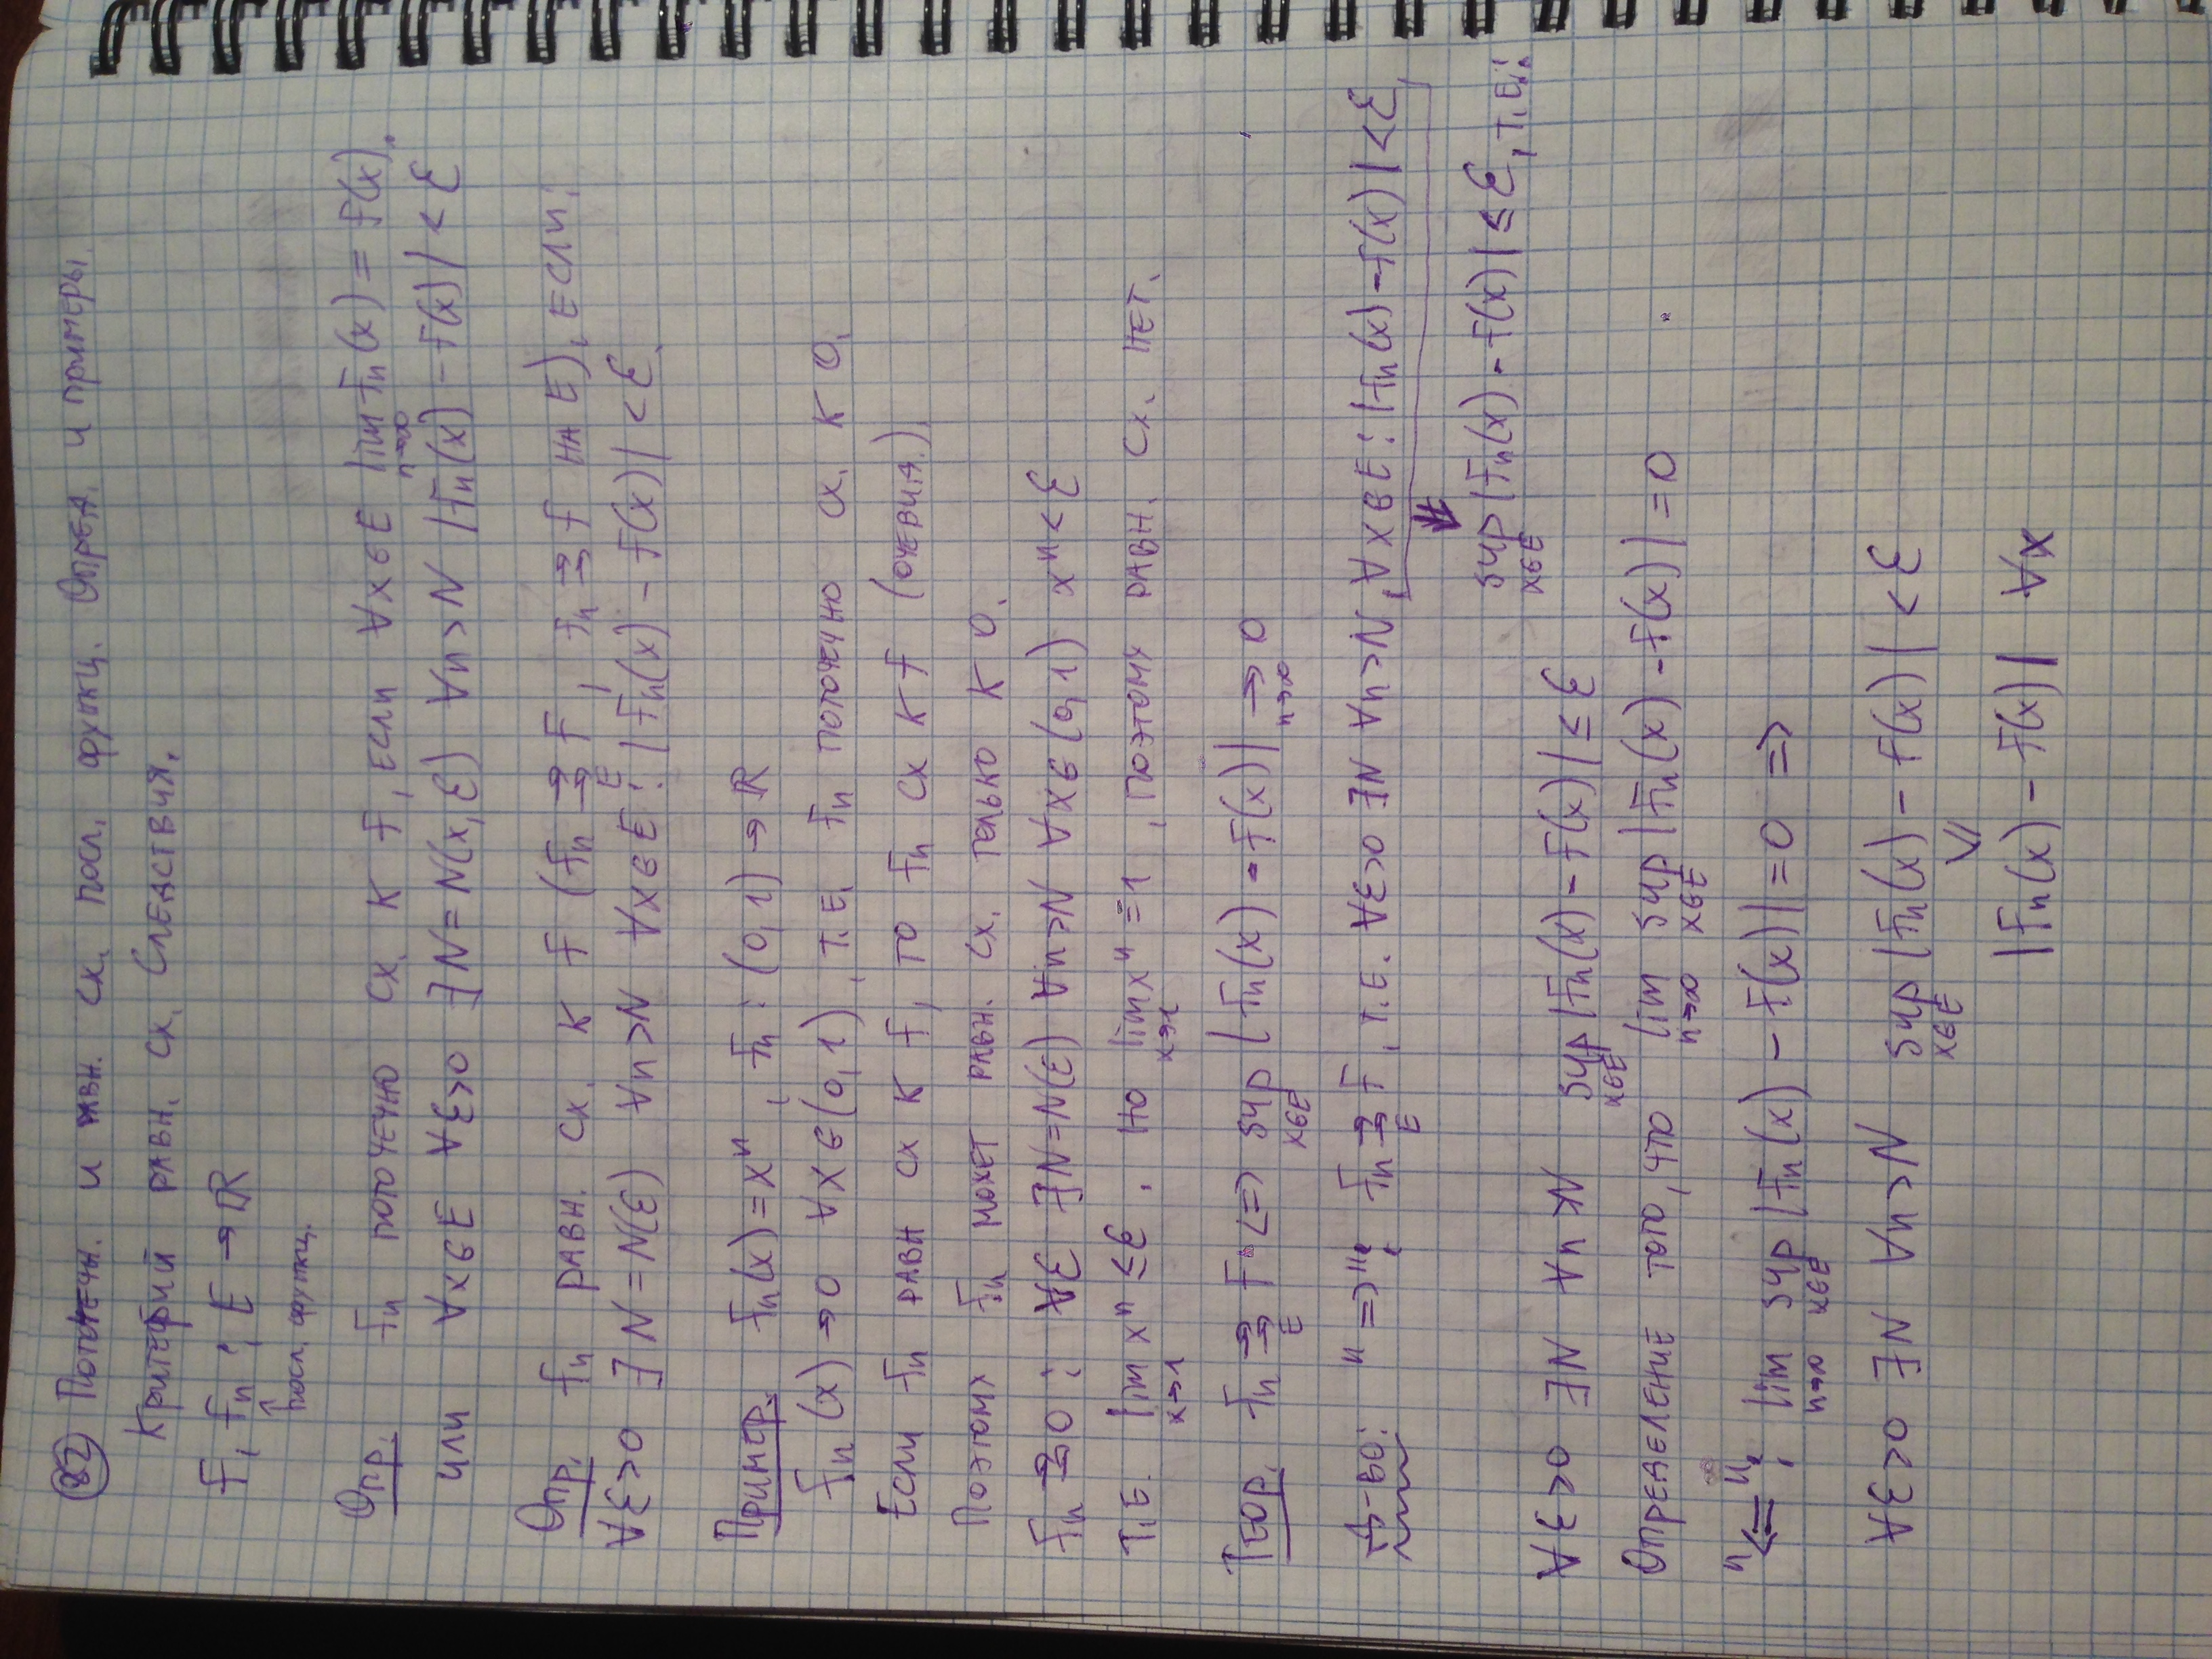 82 Поточечн. и равн. сх. посл. функц. Опред. и примеры.
Критерий равн. сх. Следствия.
f, fₙ : E → ℝ
↑
посл. функц.
Опр. fₙ поточечно сх. к f, если ∀x∈E lim fₙ(x) = f(x).
n→∞
или ∀x∈E ∀ε>0 ∃N=N(x,ε) ∀n>N |fₙ(x) - f(x)| < ε
Опр. fₙ равн. сх. к f (fₙ ⇉ f, fₙ ⇉ f на E), если:
E
∀ε>0 ∃N=N(ε) ∀n>N ∀x∈E : |fₙ(x) - f(x)| < ε.
Пример. fₙ(x) = xⁿ, fₙ : (0,1) → ℝ
fₙ(x) → 0 ∀x∈(0,1), т.е. fₙ поточечно сх. к 0.
Если fₙ равн сх к f, то fₙ сх к f (очевид.).
Поэтому fₙ может равн. сх. только к 0.
fₙ ⇉ 0 : ∀ε ∃N=N(ε) ∀n>N ∀x∈(0,1) xⁿ < ε
т.е. lim xⁿ ≤ ε, но lim xⁿ = 1, поэтому равн. сх. нет.
x→1 x→1
Теор. fₙ ⇉ f <=> sup |fₙ(x) - f(x)| → 0
E x∈E n→∞
Д-во: "=>": fₙ ⇉ f, т.е. ∀ε>0 ∃N ∀n>N, ∀x∈E : |fₙ(x) - f(x)| < ε,
E
⇓
sup |fₙ(x) - f(x)| ≤ ε, т.е.:
x∈E
∀ε>0 ∃N ∀n>N sup |fₙ(x) - f(x)| ≤ ε
x∈E
Определение того, что lim sup |fₙ(x) - f(x)| = 0
n→∞ x∈E
"<=": lim sup |fₙ(x) - f(x)| = 0 =>
n→∞ x∈E
∀ε>0 ∃N ∀n>N sup |fₙ(x) - f(x)| < ε
x∈E
\/ /
|fₙ(x) - f(x)| ∀x